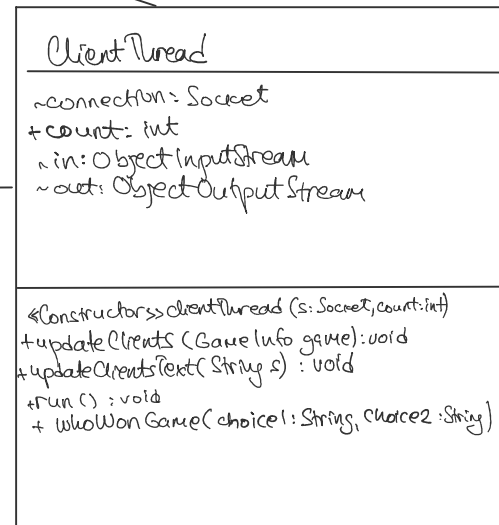 ClientThread
~connection: Socket
+count: int
~in: ObjectInputStream
~out: ObjectOutputStream
<<Constructor>> clientThread (s: Socket, count: int)
+updateClients (GameInfo game): void
+updateClientsText( String s) : void
+run () : void
+ whoWonGame( choice1: String, choice2: String)